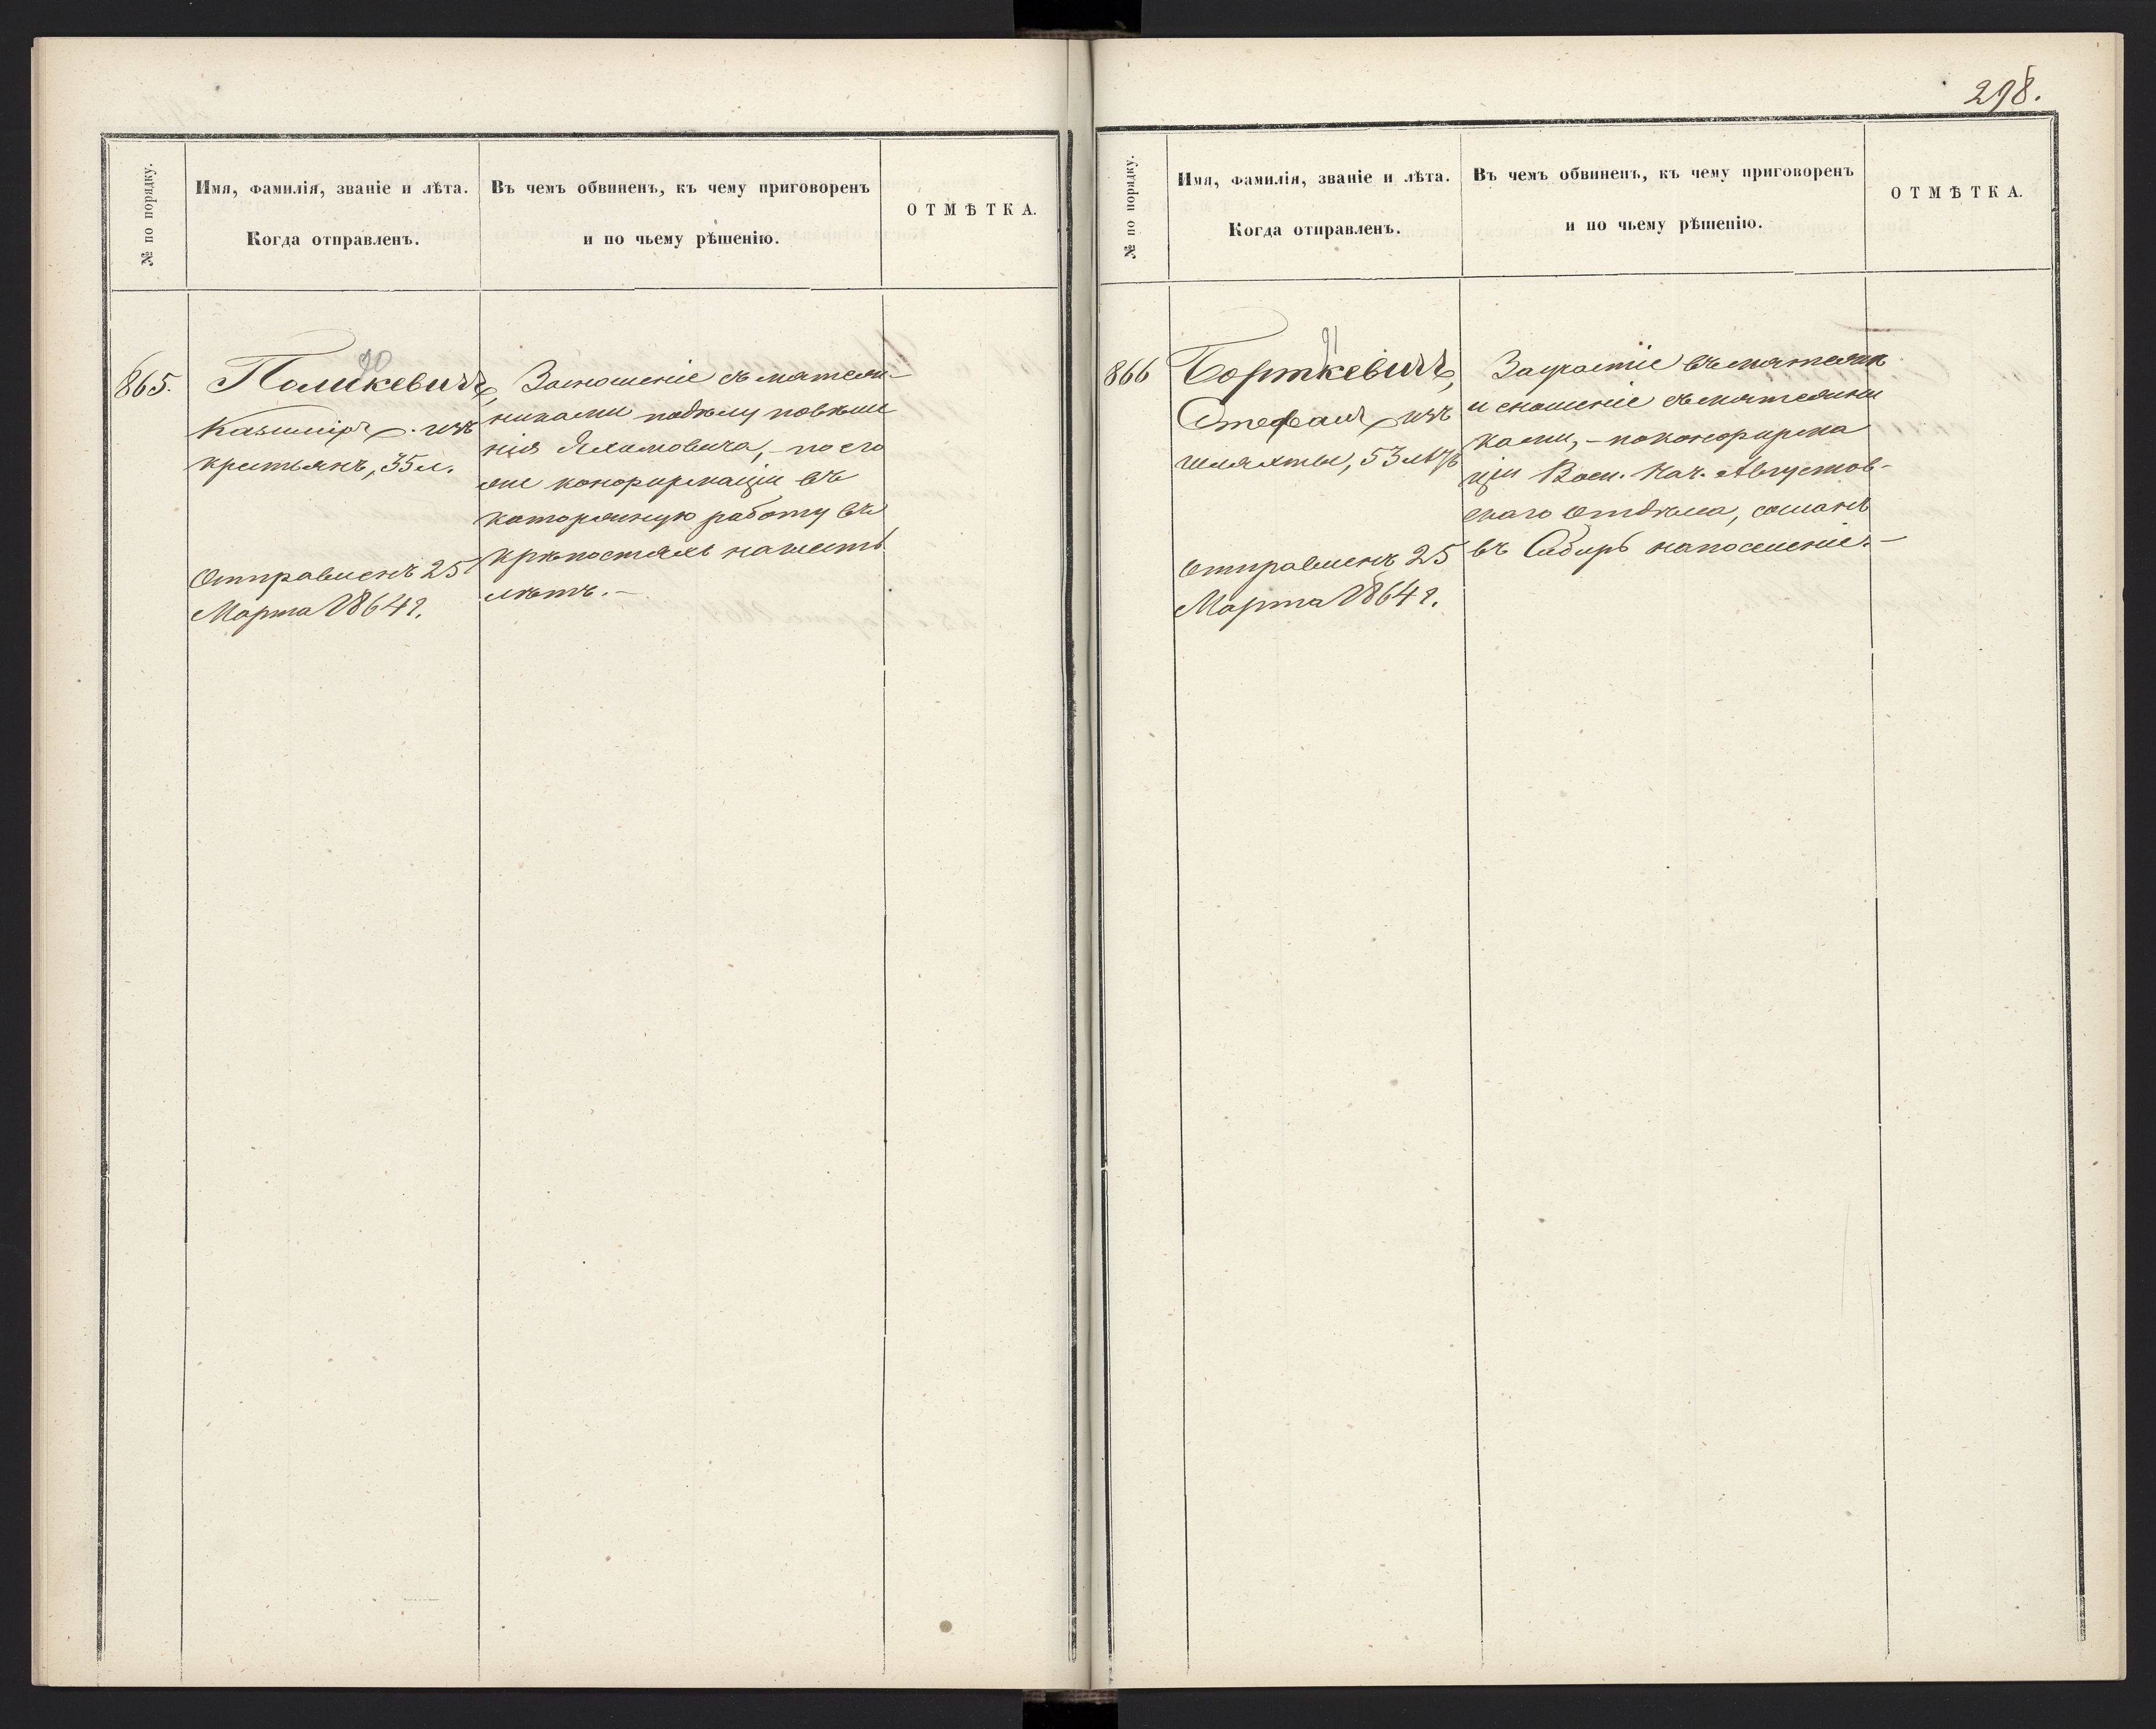 298.
№ по порядку.
Имя, фамилія, званіе и лѣта.
Когда отправленъ.
Въ чемъ обвиненъ, къ чему приговоренъ
и по чьему рѣшенію.
ОТМѢТКА.
865.
90
Казиміръ, изъ
крестьянъ, 35 л.
Отправленъ 25
Марта 1864 г.
За сношеніе съ мятеж-
никами по дѣлу повѣше
нія по его
же конфирмаціи въ
каторжную работу въ
крѣпостяхъ на шесть
лѣтъ. –
№ по порядку.
Имя, фамилія, званіе и лѣта.
Когда отправленъ.
Въ чемъ обвиненъ, къ чему приговоренъ
и по чьему рѣшенію.
ОТМѢТКА.
866
91
Борткевичъ,
Стефанъ, изъ
шляхты, 53 лѣтъ
Отправленъ 25
Марта 1864 г.
За участіе въ мятежѣ
и сношеніе съ мятежни
ками, – по конфирма
ціи Воен. Нач. Августов-
скаго Отдѣла, сосланъ
въ Сибирь на поселеніе. –